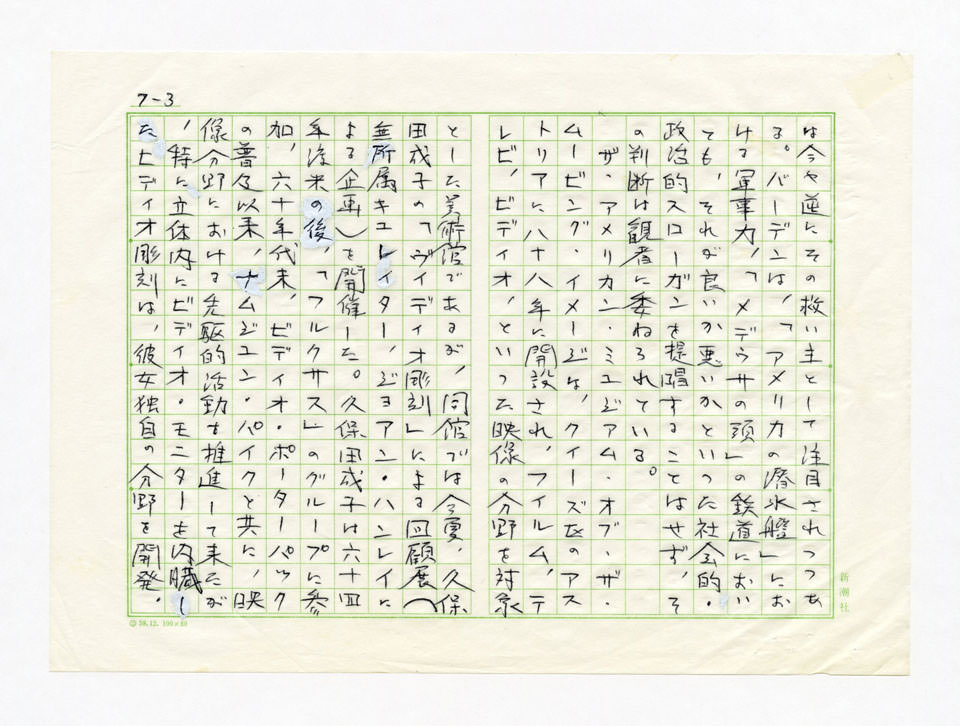 7-3
は今や逆にその救い主として注目されつつあ
る。バーデンは、「アメリカの潜水艦」にお
ける軍事力、「メデウサの頭」の鉄道におい
ても、それが良いか悪いかといった社会的・
政治的スローガンを提唱することはせず、そ
の判断は観者に委ねられている。
ザ・アメリカン・ミュジアム・オブ・ザ・
ムービング・イメージは、クイーズ区のアス
トリアに八十八年に開設され、フィルム、テ
レビ、ビディオ、といった映像の分野を対象
とした美術館であるが、同館では今夏、久保
田成子の「ヴィディオ彫刻」による回顧展（
無所属キュレイター、ジョアン・ハンレイに
よる企画）を開催した。久保田成子は六十四
年渡米の後、「フルクサス」のグループに参
加、六十年代末、ビディオ・ポーターパック
の普及以来、ナムジュン・パイクと共に、映
像分野における先駆的活動を推進して来たが
、特に立体内にビディオ・モニターを内臓し
たビディオ彫刻は、彼女独自の分野を開発。
新潮社
58.12. 100×60